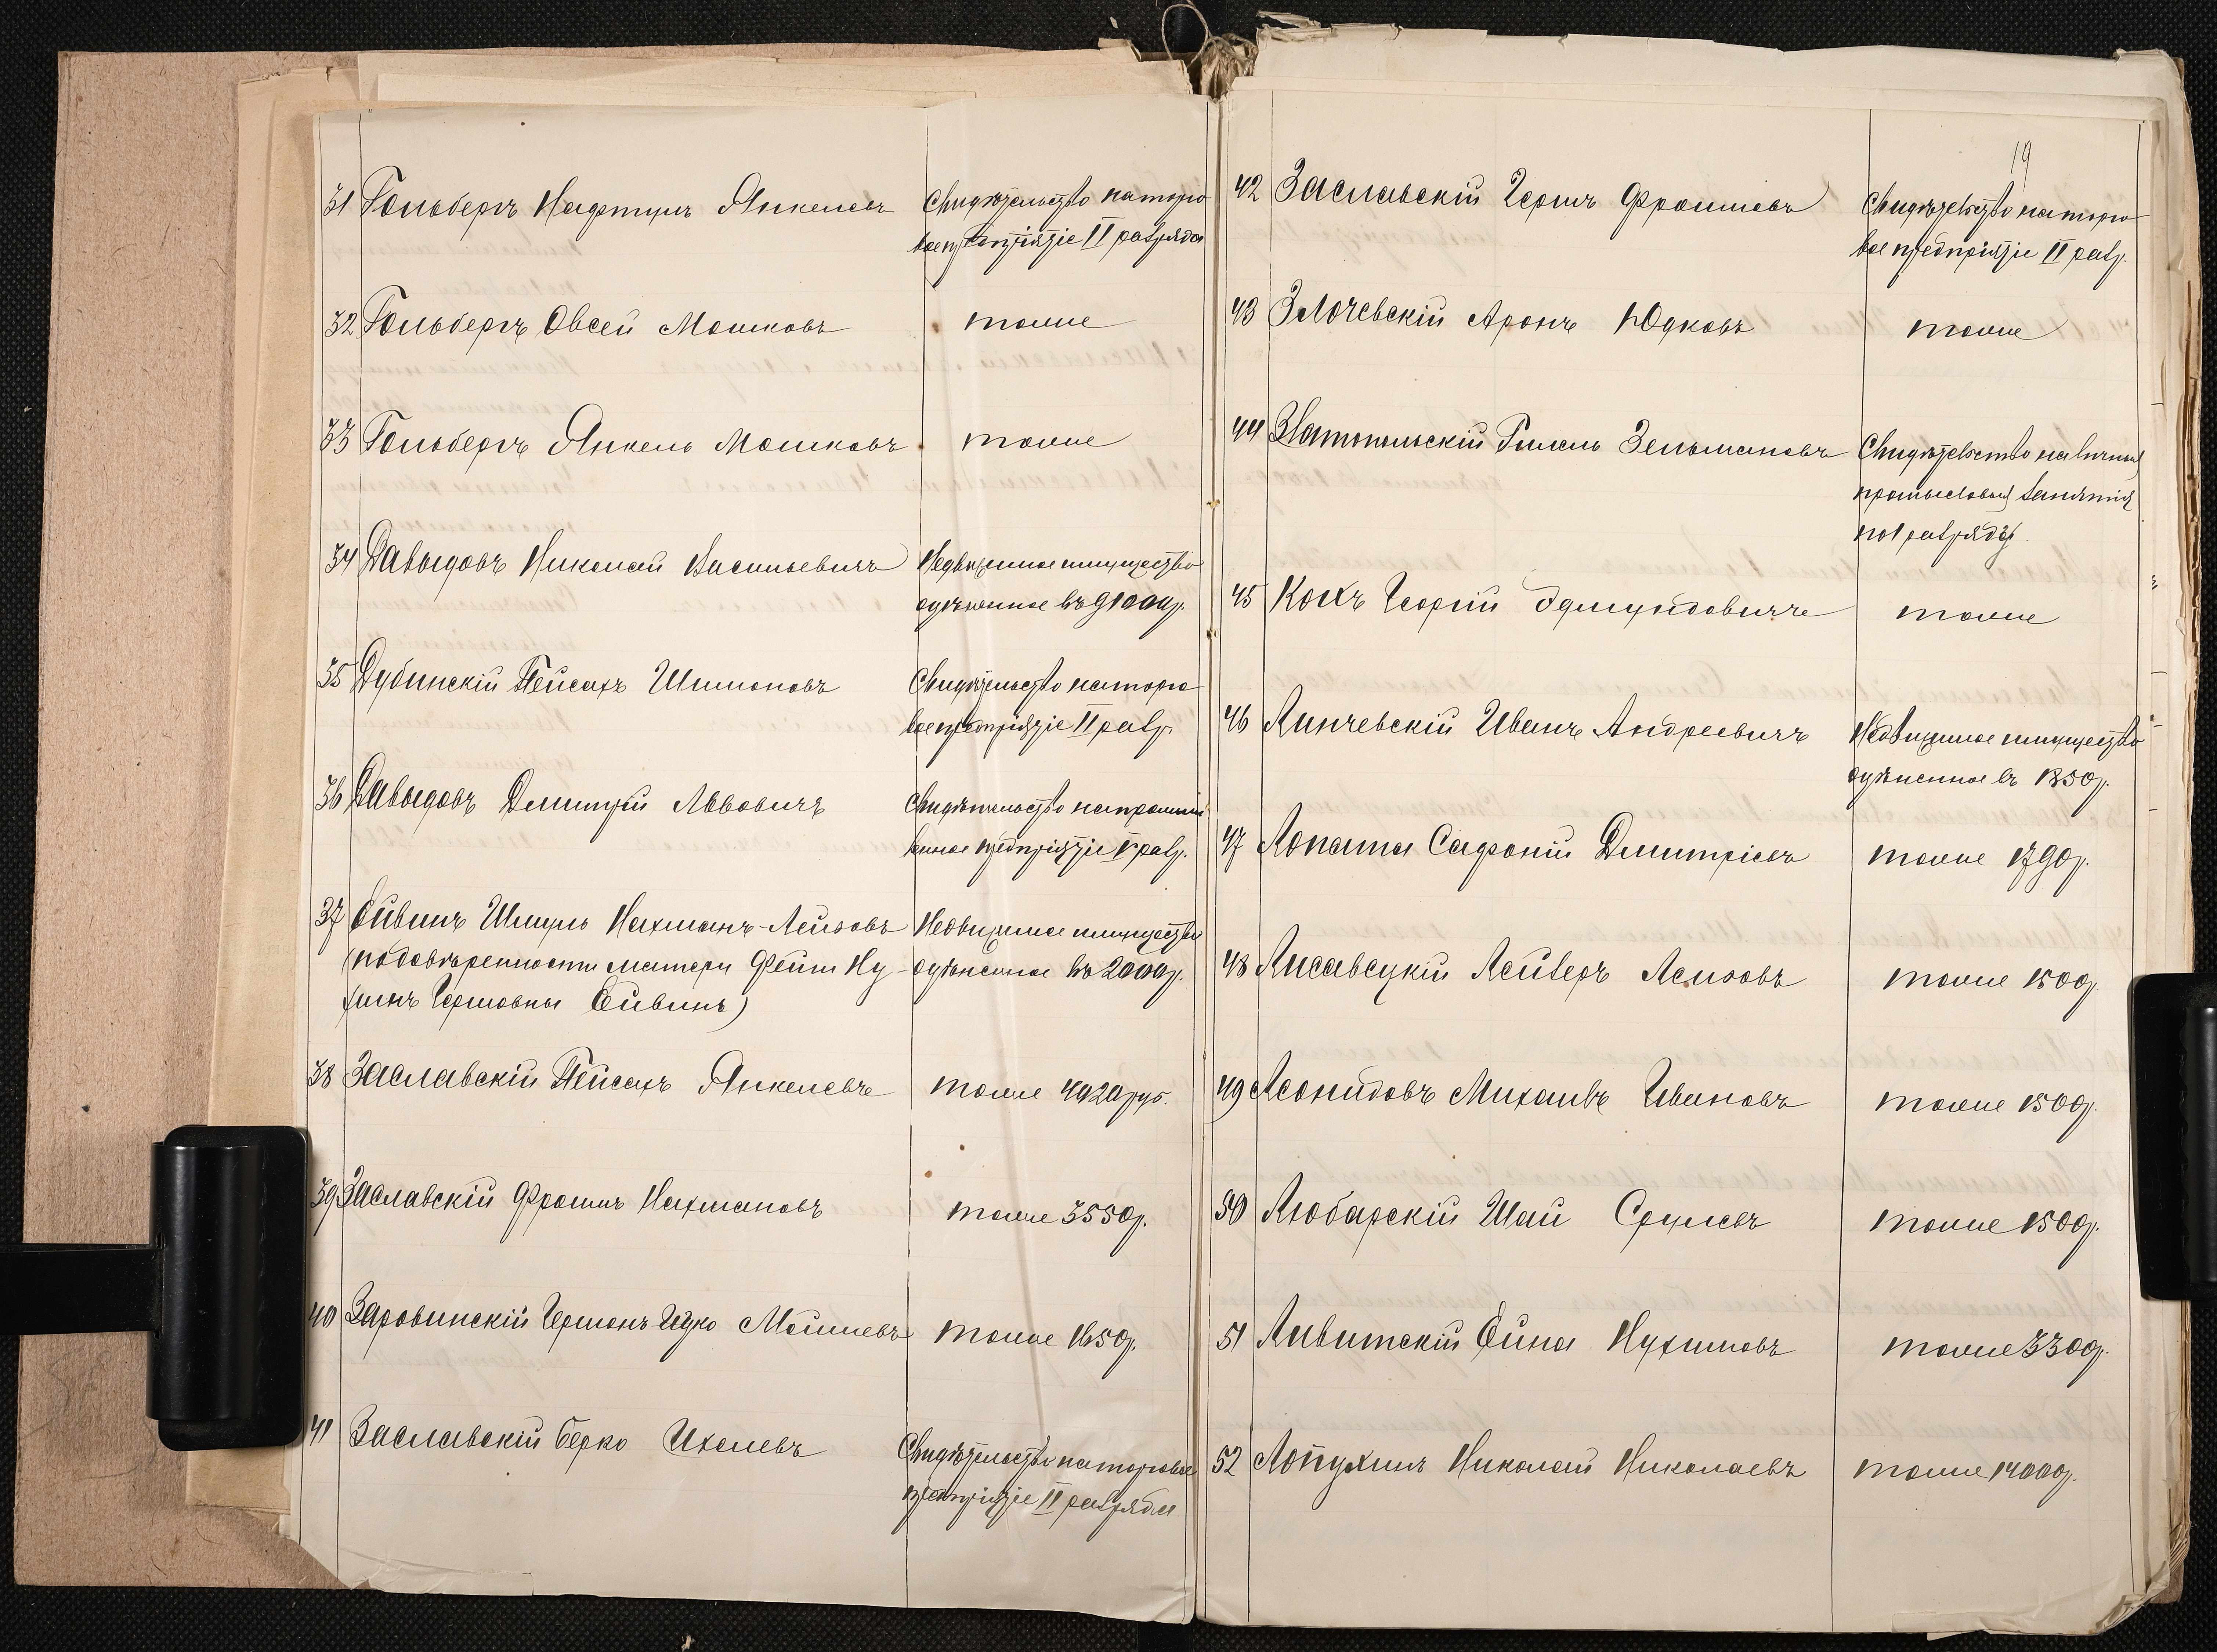 31 Гольберъ Нафтулъ Янкелевъ Свидѣтельство на торго
вое предпріятіе II разряда
32 Гольберъ Овсей Мошковъ тоже
33 Гольберъ Янкель Мошковъ тоже
34 Давыдовъ Николай Васильевичъ Недвижимое имущество
оцѣненное въ 91000р.
35 Дубинскій Пейсахъ Шимоновъ Свидѣтельство на торго
вое предпріятіе II разр.
36 Давыдовъ Дмитрій Львовичъ Свидѣтельство на промыш
ленное предпріятіе V разр.
37 Ейвинъ Шмуль Нахманъ-Лейзовъ Недвижимое имущество
(по довѣренности матери Фейги Ну- оцѣненное въ 2000р.
химъ Гершовны Ейвинъ)
38 Заславскій Пейсахъ Янкелевъ тоже 4920 руб.
39 Заславскій Фроимъ Нахмановъ тоже 3550р.
40 Заровинскій Гершонъ-Ицко Мошиевъ тоже 1650р.
41 Заславскій Берко Ихелевъ Свидѣтельство на торговое
предпріятіе II разряда
19
42 Заславскій Гершъ Фроимовъ Свидѣтельство на торго
вое предпріятіе II разр.
43 Злочевскій Аронъ Юдковъ тоже
44 Златопольскій Зельмановъ Свидѣтельство на личныя
промысловыя занятія
по I разряду.
45 Кохъ Георгій Эдмундовичъ тоже
46 Линчевскій Иванъ Андреевичъ Недвижимое имущество
оцѣненное въ 1850р.
47 Лопата Сафоній Дмитріевъ тоже 1790р.
48 Лисавецкій Лейзеръ Лейзовъ тоже 1500р.
49 Леонидовъ Михаилъ Ивановъ тоже 1500р.
50 Любарскій Шай Срулевъ тоже 1500р.
51 Ливитскій Ейна Нухимовъ тоже 3300р.
52 Лопухинъ Николай Николаевъ тоже 14000р.